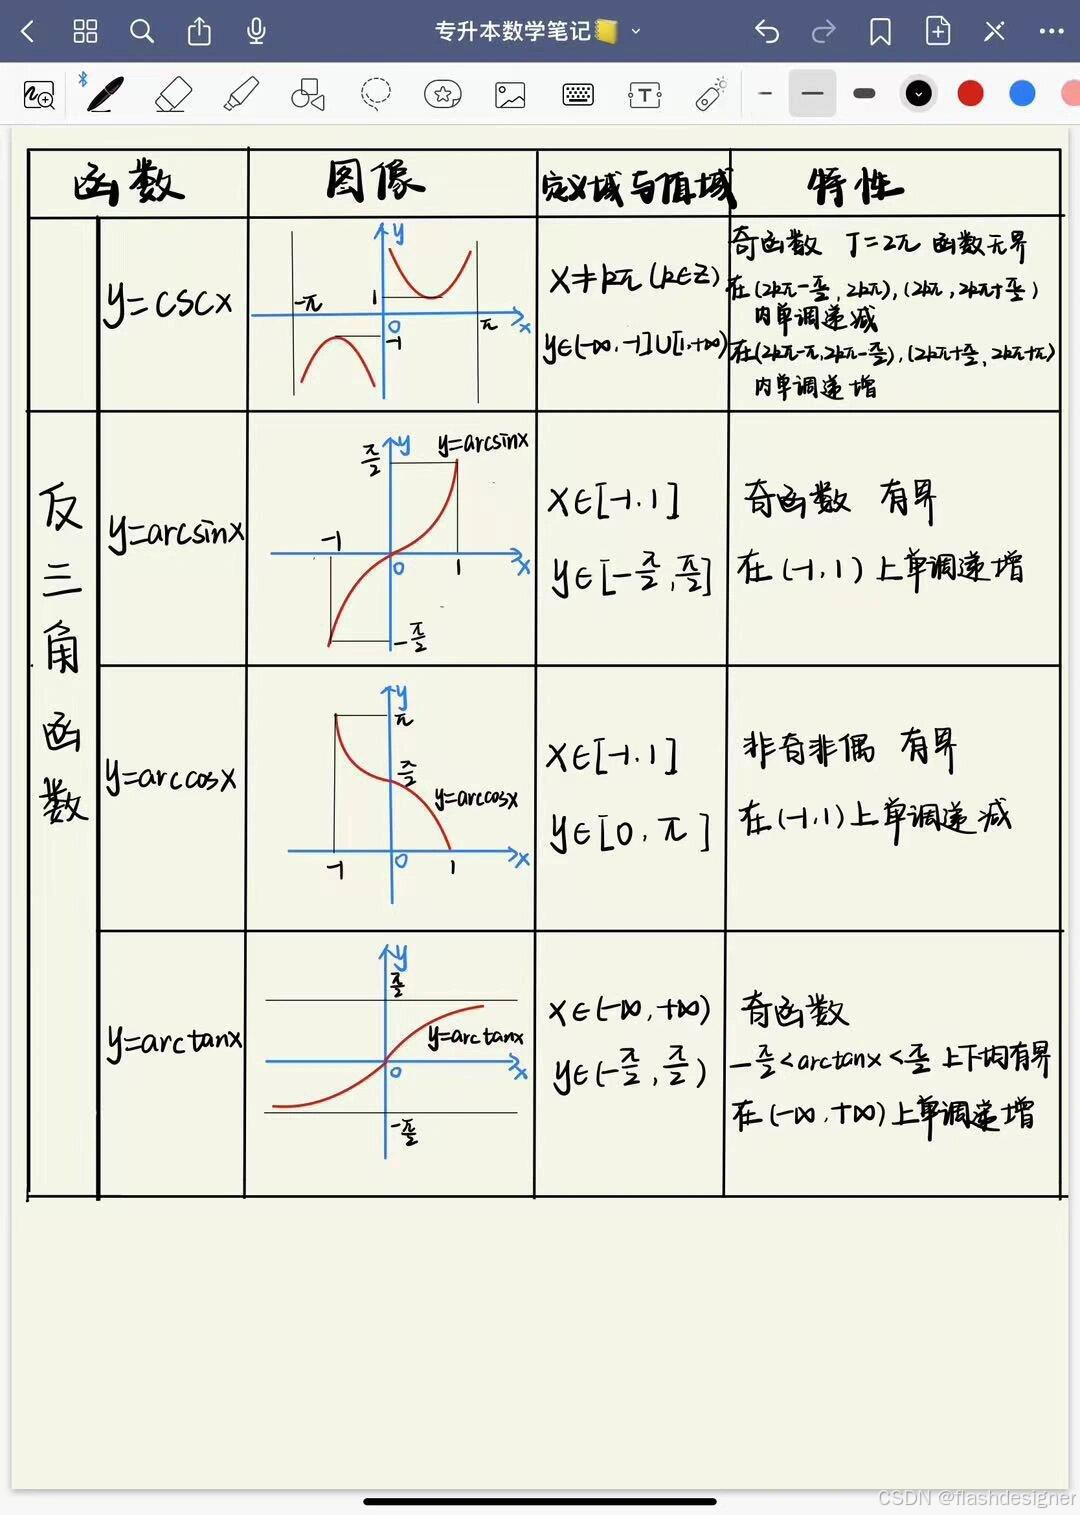 专升本数学笔记
函数 图像 定义域与值域 特性
y=cscx
y
-π
1
0
-1
π
x
x≠kπ (k∈Z)
y∈(-∞,-1]∪[1,+∞)
奇函数 T=2π 函数无界
在(2kπ-π/2, 2kπ), (2kπ, 2kπ+π/2)
内单调递减
在(2kπ-π, 2kπ-π/2), (2kπ+π/2, 2kπ+π)
内单调递增
反三角函数
y=arcsinx
π/2
y
y=arcsinx
-1
0
1
x
-π/2
x∈[-1,1]
y∈[-π/2,π/2]
奇函数 有界
在(-1,1)上单调递增
y=arccosx
y
π
π/2
y=arccosx
-1
0
1
x
x∈[-1,1]
y∈[0,π]
非奇非偶 有界
在(-1,1)上单调递减
y=arctanx
y
π/2
y=arctanx
0
x
-π/2
x∈(-∞,+∞)
y∈(-π/2,π/2)
奇函数
-π/2<arctanx<π/2 上下均有界
在(-∞,+∞)上单调递增
CSDN @flashdesigner